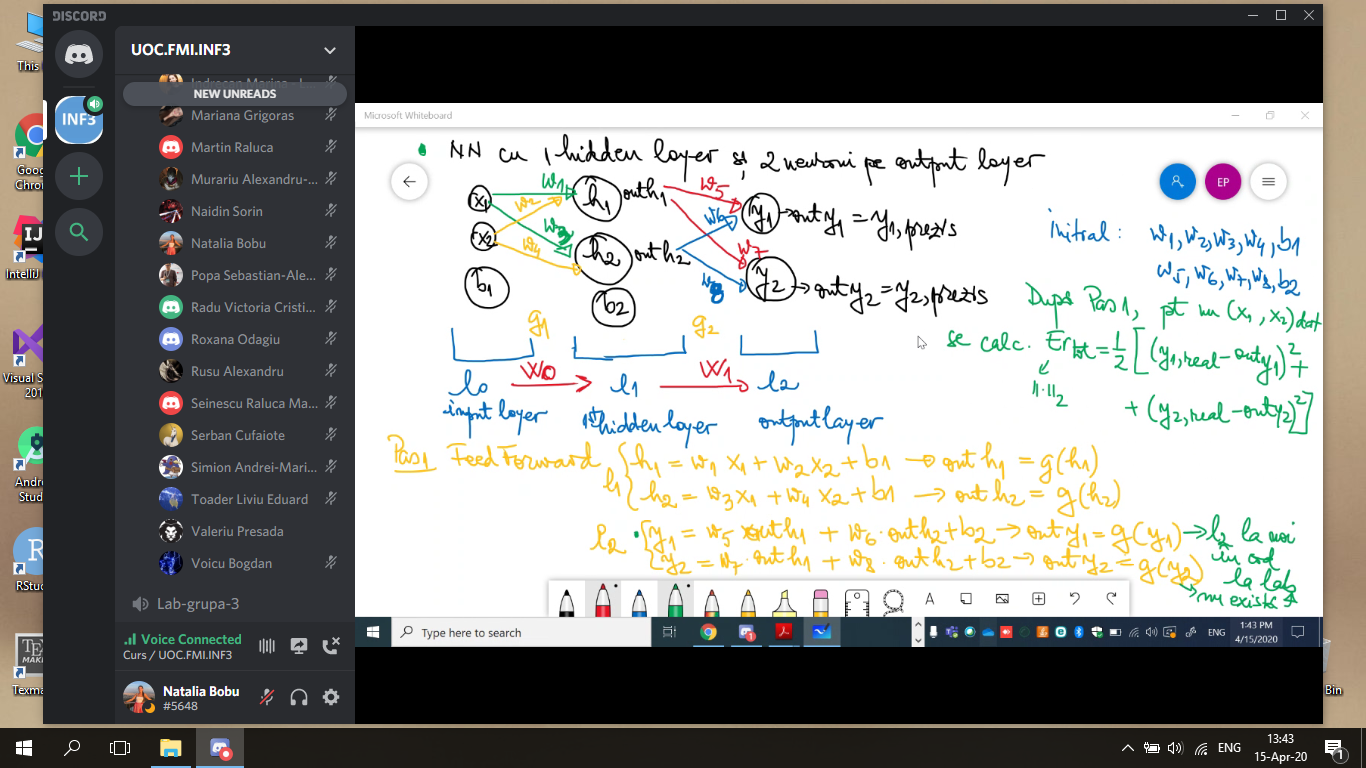 DISCORD
This
UOC.FMI.INF3
NEW UNREADS
INF3
Mariana Grigoras
Martin Raluca
Murariu Alexandru-...
Naidin Sorin
Natalia Bobu
Popa Sebastian-Ale...
Radu Victoria Cristi...
Roxana Odagiu
Rusu Alexandru
Seinescu Raluca Ma...
Serban Cufaiote
Simion Andrei-Mari...
Toader Liviu Eduard
Valeriu Presada
Voicu Bogdan
Lab-grupa-3
Voice Connected
Curs / UOC.FMI.INF3
Natalia Bobu
#5648
Goog
Chro
IntelliJ
Visual S
201
Andro
Stud
RStud
Texma
Bin
Microsoft Whiteboard
EP
NN cu 1 hidden layer și 2 neuroni pe output layer
x1 w1 w2 h1 outh1 w5 w6 y1 → out y1 = y1,prezis
x2 w3 w4 h2 outh2 w7 w8 y2 → out y2 = y2,prezis
b1 b2
g1 g2
l0 W0 l1 W1 l2
input layer 1st hidden layer output layer
initial: w1, w2, w3, w4, b1
w5, w6, w7, w8, b2
După Pas 1, pt un (x1, x2) dat
se calc. Er tot = 1/2 [(y1,real - outy1)² +
+ (y2,real - outy2)²]
||·||2
Pas1 FeedForward
h1 = w1 x1 + w2 x2 + b1 → out h1 = g(h1)
h2 = w3 x1 + w4 x2 + b1 → out h2 = g(h2)
l2
y1 = w5 · outh1 + w6 · outh2 + b2 → out y1 = g(y1) → l2 la noi
în cod
y2 = w7 · outh1 + w8 · outh2 + b2 → out y2 = g(y2)
la lab
→ nu există
Type here to search
ENG
1:43 PM
4/15/2020
ENG
13:43
15-Apr-20
1